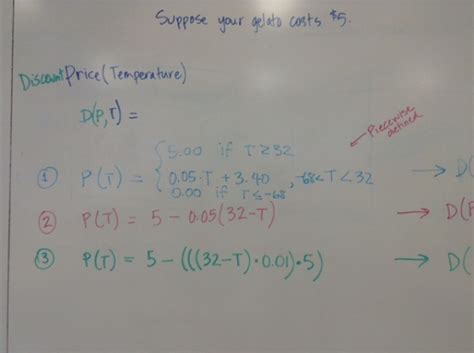 Suppose your gelato costs $5.
DiscountPrice(Temperature)
D(P,T) =
Piecewise
defined
5.00 if T≥32
① P(T) = { 0.05·T + 3.40, -68<T<32 → D(
0.00 if T≤-68
② P(T) = 5 - 0.05(32-T) → D(P
③ P(T) = 5 - (((32-T)·0.01)·5) → D(